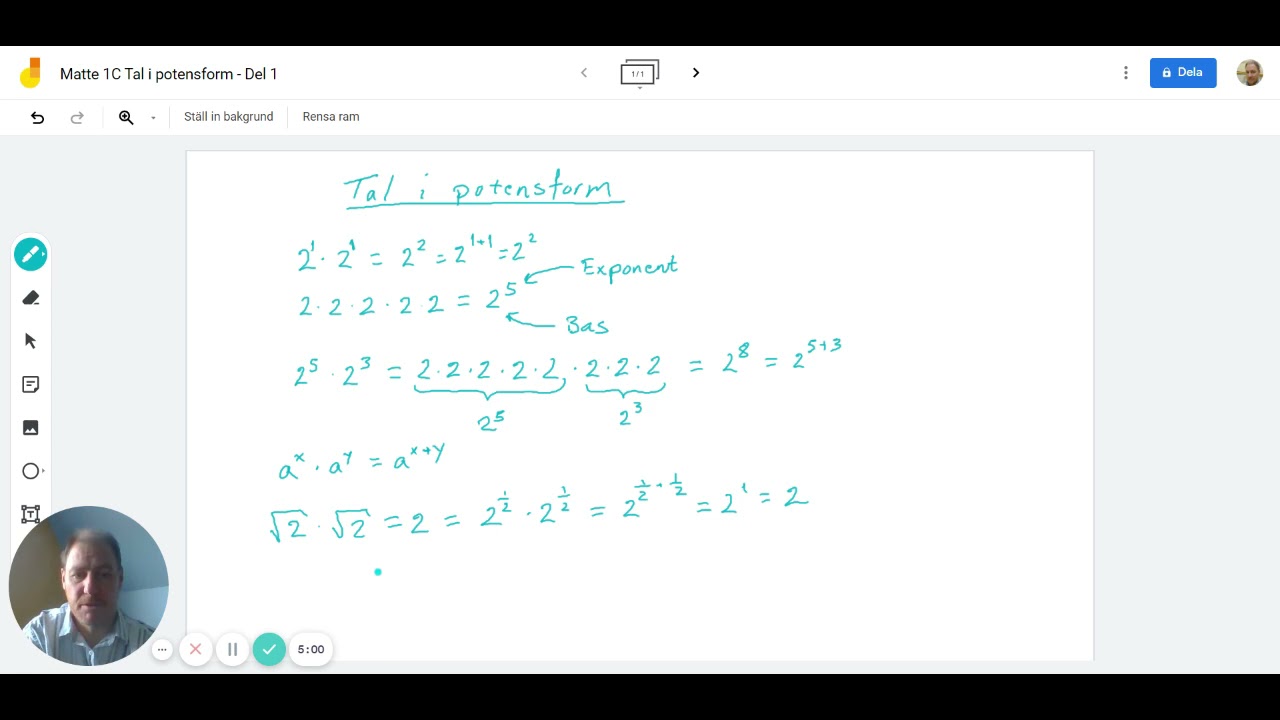 Matte 1C Tal i potensform - Del 1
1/1
Dela
Ställ in bakgrund
Rensa ram
Tal i potensform
2¹ · 2¹ = 2² = 2¹⁺¹ = 2²
Exponent
2 · 2 · 2 · 2 · 2 = 2⁵
Bas
2⁵ · 2³ = 2 · 2 · 2 · 2 · 2 · 2 · 2 · 2 = 2⁸ = 2⁵⁺³
2⁵ 2³
aˣ · aʸ = aˣ⁺ʸ
√2 · √2 = 2 = 2^½ · 2^½ = 2^½+½ = 2¹ = 2
5:00